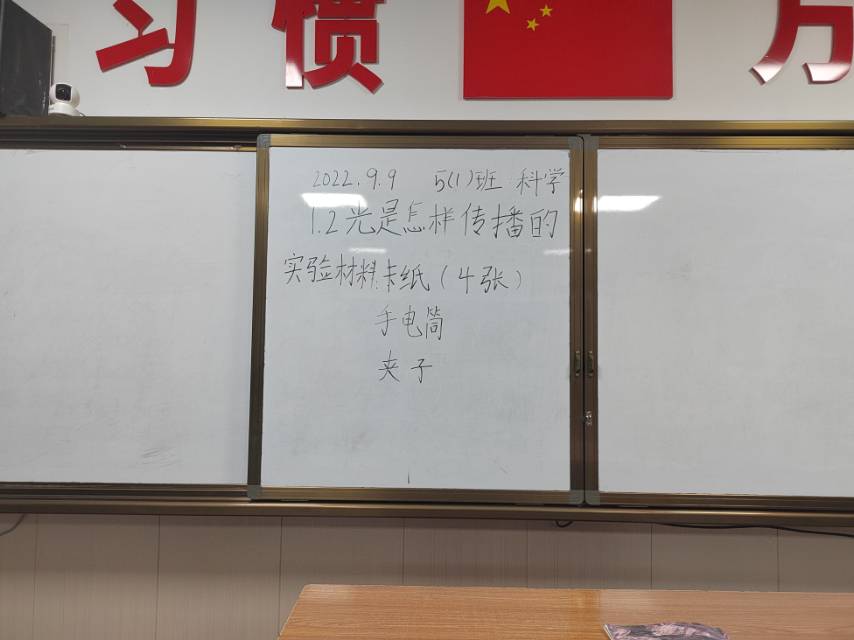 习惯 方
2022.9.9 5(1)班 科学
1.2光是怎样传播的
实验材料:卡纸(4张)
手电筒
夹子